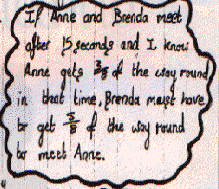 If Anne and Brenda meet
after 15 seconds and I know
Anne gets 3/8 of the way round
in that time, Brenda must have
to get 5/8 of the way round
to meet Anne.